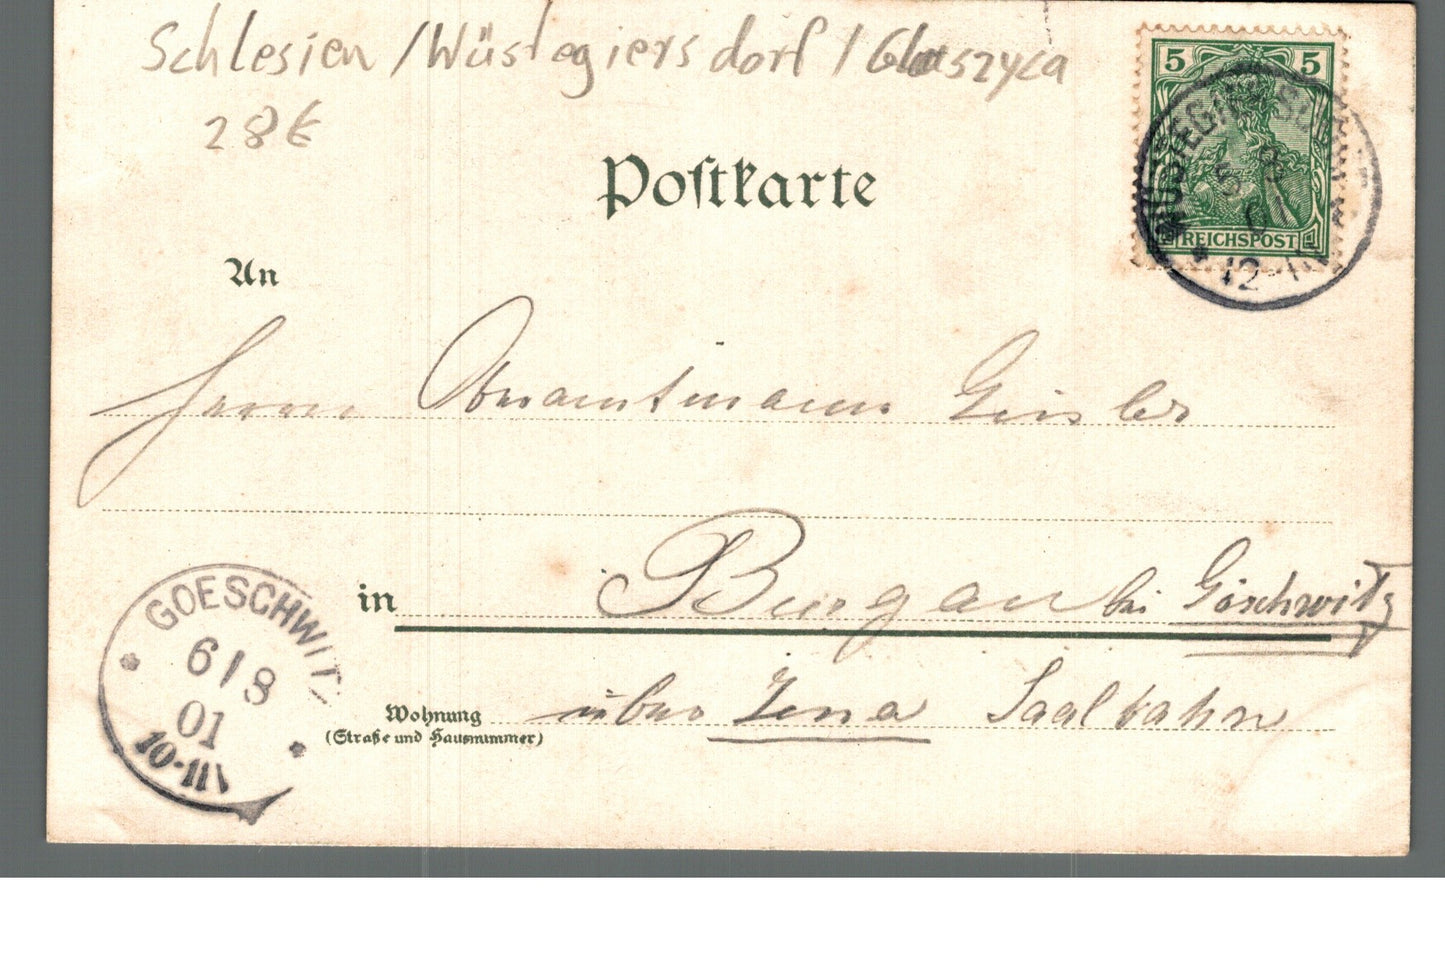 Schlesien / Wüstegiersdorf / Głuszyca
28 €
5 5
REICHSPOST
5 8
01
12-
Postkarte
An
Herrn Oberamtmann Geisler
in Burgau bei Göschwitz
Wohnung über Jena Saalbahn
(Straße und Hausnummer)
GOESCHWITZ
6/8
01
10-11V